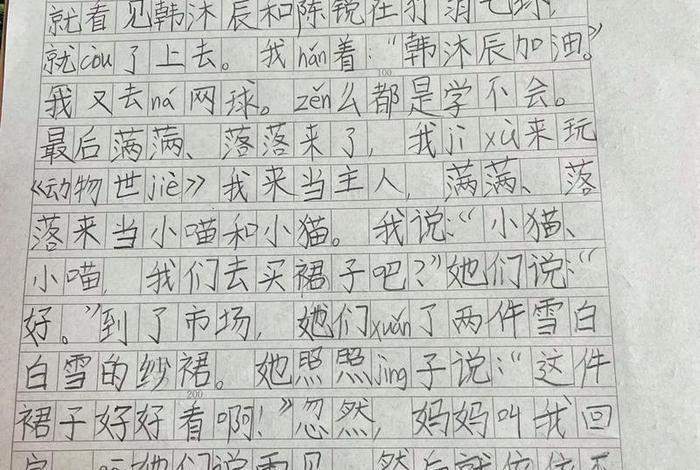 就看见韩沐辰和陈锐在打羽毛球，
就còu了上去。我hǎn着：“韩沐辰加油。”
100
我又去ná网球。zěn么都是学不会。
最后满满、落落来了，我jì xù来玩
《动物世jiè》我来当主人，满满、落
落来当小喵和小猫。我说：“小猫、
小喵，我们去买裙子吧？”她们说：“
好。”到了市场，她们xuǎn了两件雪白
白雪的纱裙。她照照jìng子说：“这件
200
裙子好好看啊！”忽然，妈妈叫我回
她们说再见，然后就